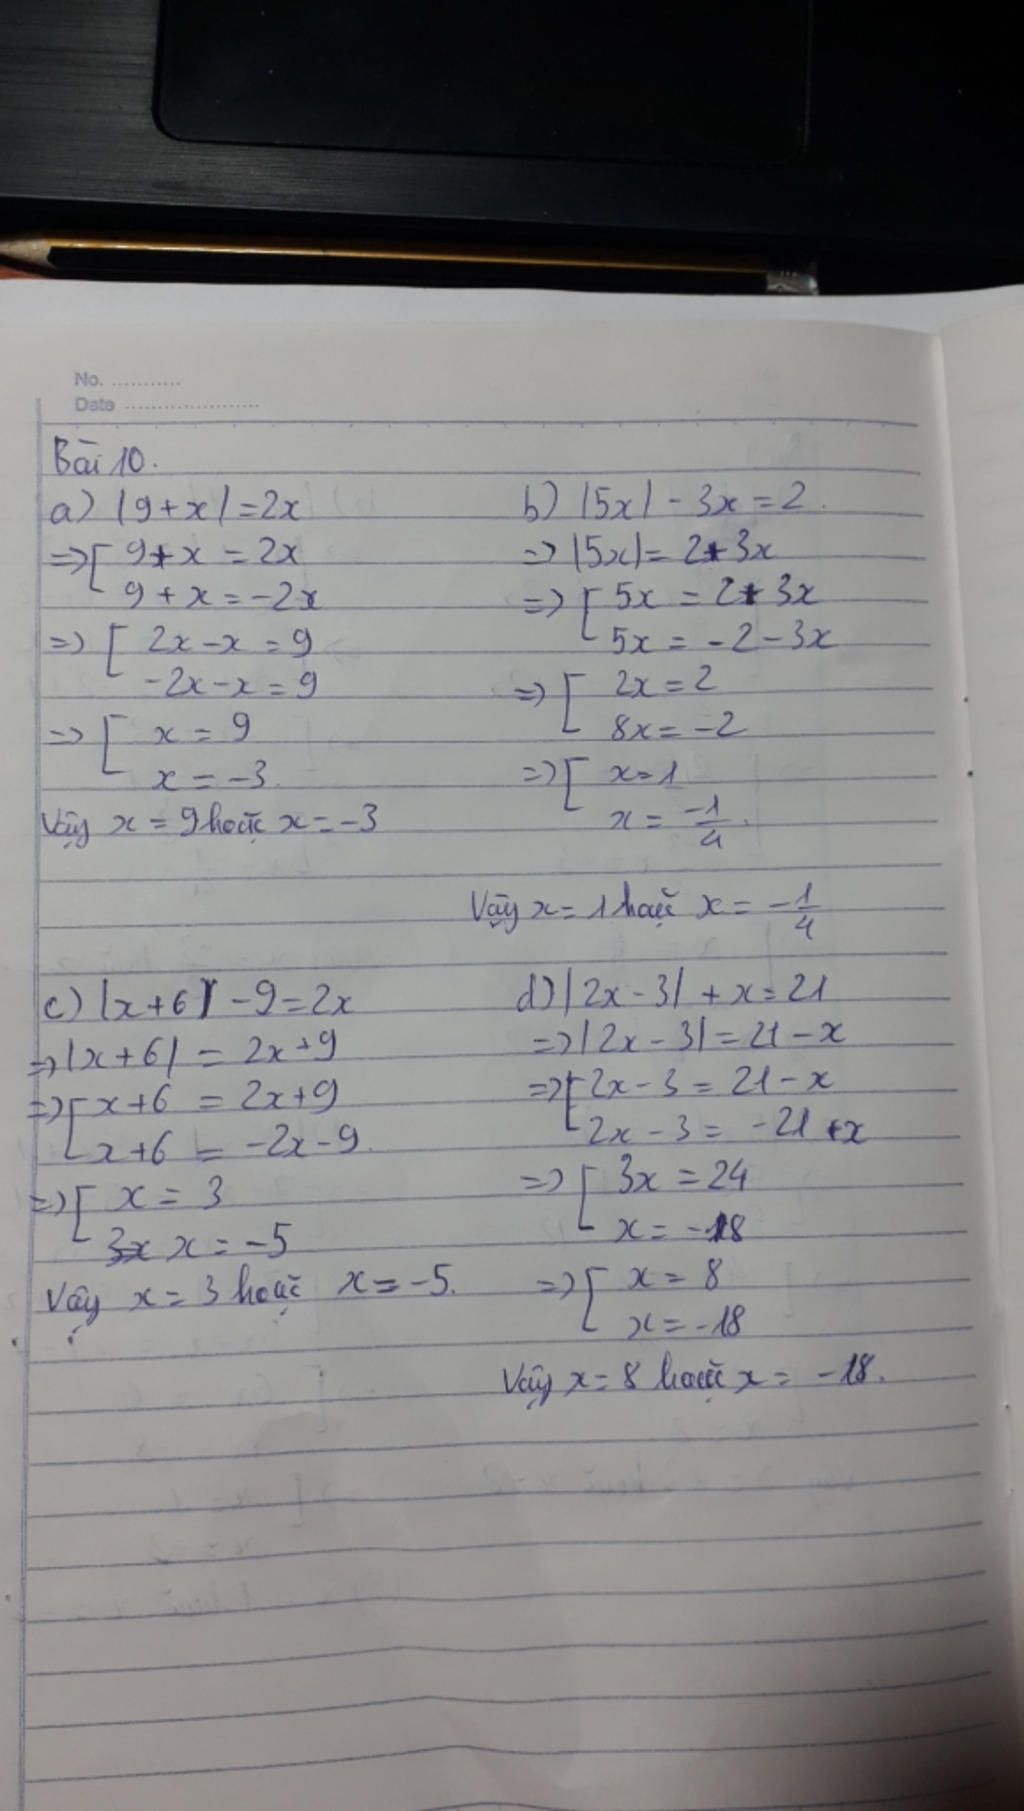 No. ............
Date ......................
Bài 10.
a) |9+x|=2x
=>[ 9+x = 2x
9+x = -2x
=> [ 2x-x = 9
-2x-x = 9
=> [ x = 9
x = -3.
Vậy x = 9 hoặc x = -3
b) |5x| - 3x = 2.
=> |5x| = 2+3x
=> [ 5x = 2+3x
5x = -2-3x
=> [ 2x = 2
8x = -2
=> [ x = 1
x = -1/4.
Vậy x = 1 hoặc x = -1/4
c) |x+6| - 9 = 2x
=> |x+6| = 2x+9
=> [ x+6 = 2x+9
x+6 = -2x-9.
=> [ x = 3
x = -5
Vậy x = 3 hoặc x = -5.
d) |2x-3| + x = 21
=> |2x-3| = 21-x
=> [ 2x-3 = 21-x
2x-3 = -21+x
=> [ 3x = 24
x = -18
=> [ x = 8
x = -18
Vậy x = 8 hoặc x = -18.